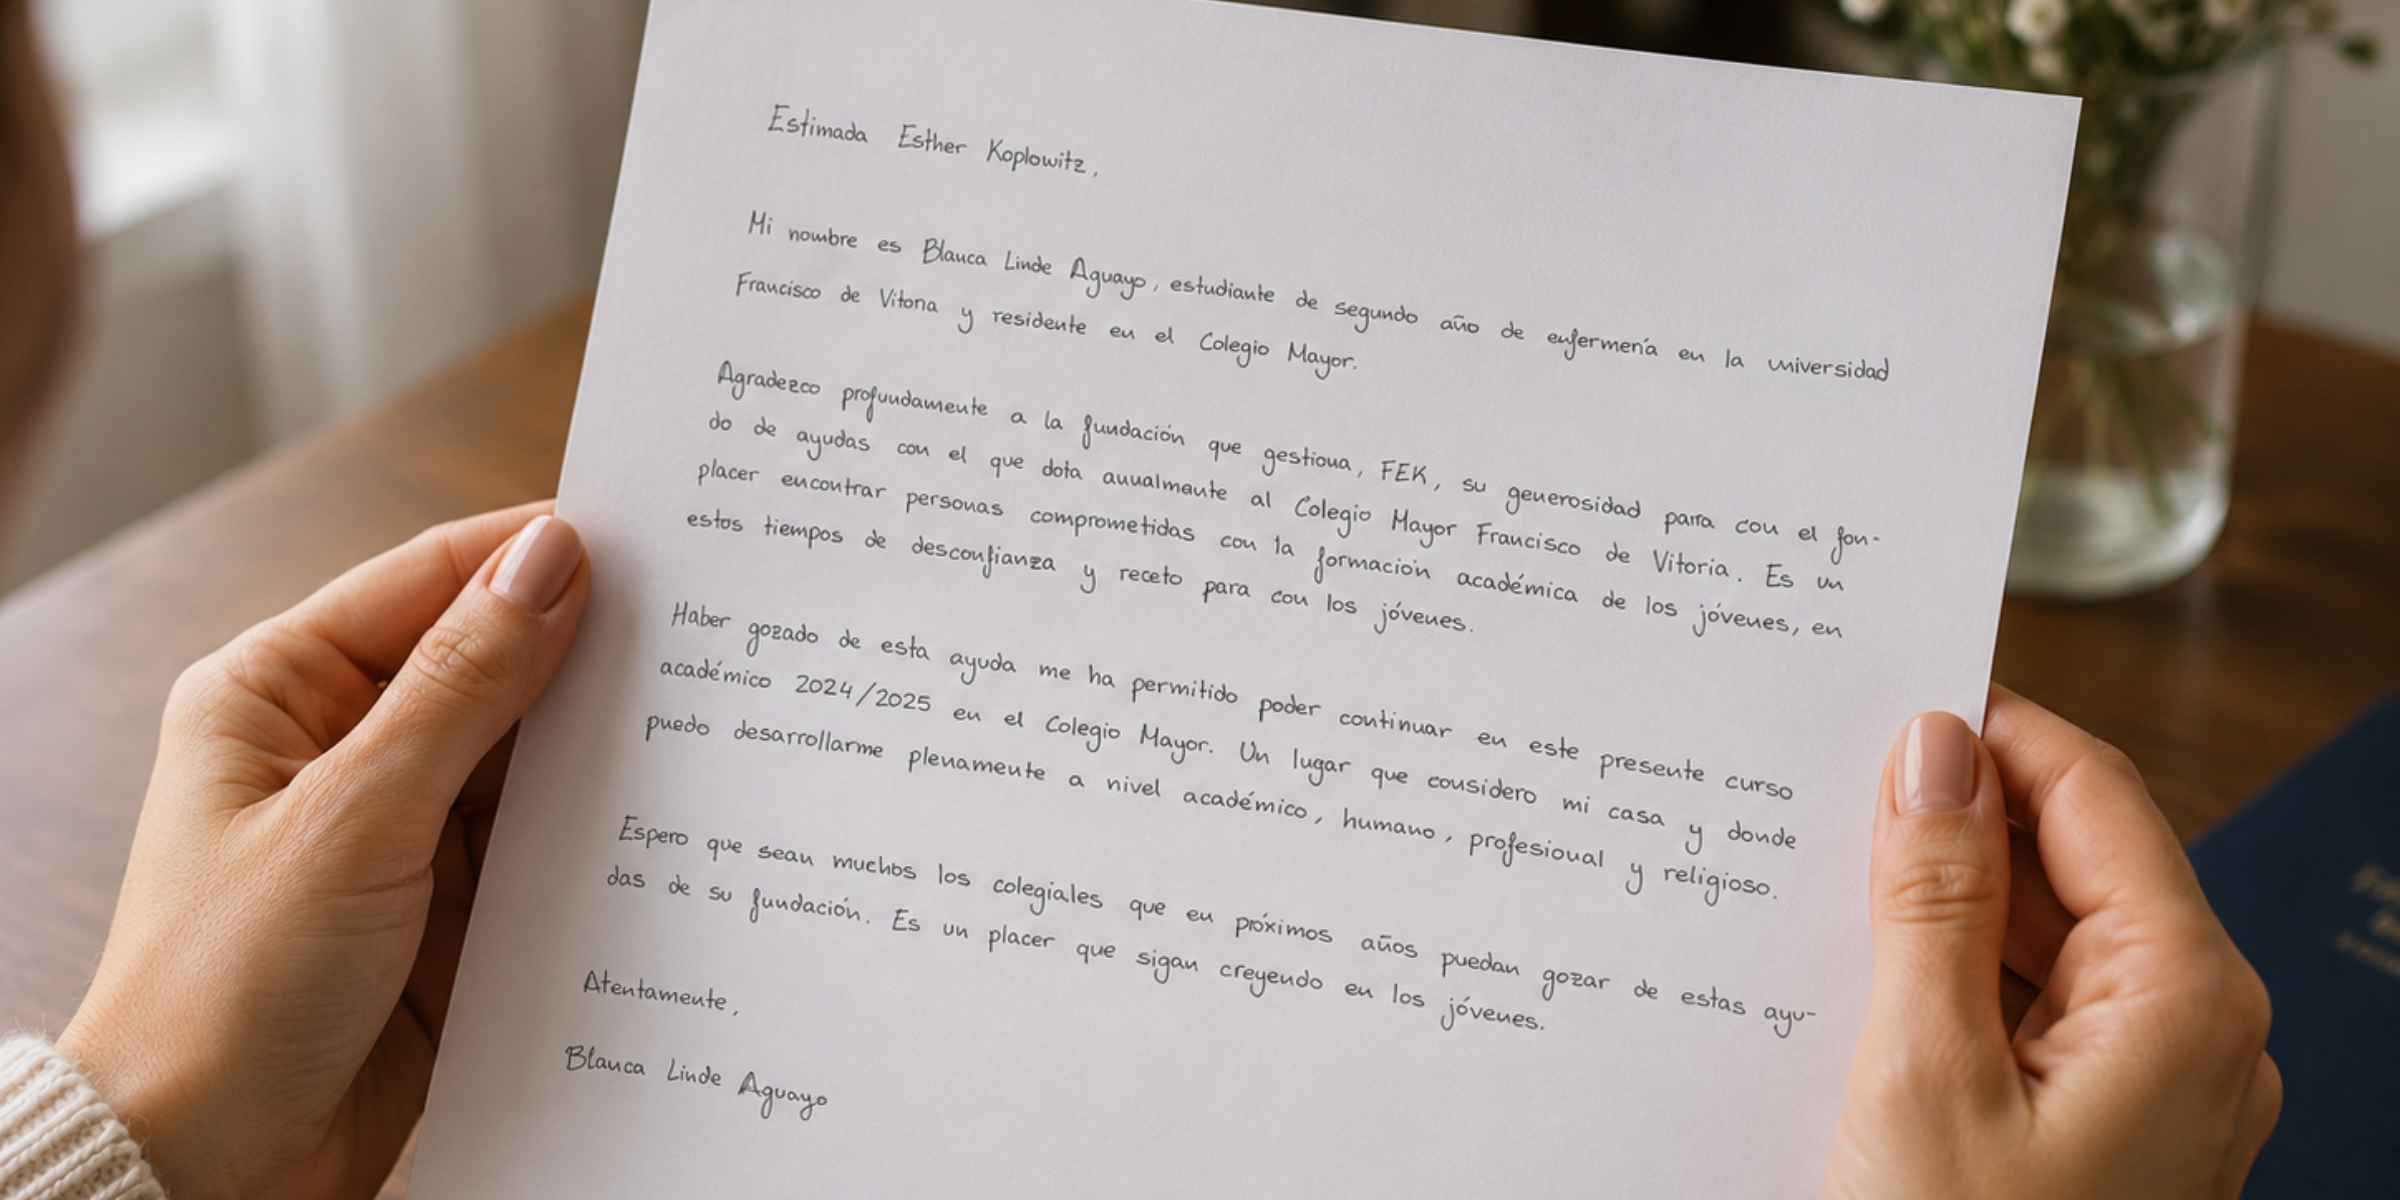 Estimada Esther Koplowitz,
Mi nombre es Blanca Linde Aguayo, estudiante de segundo año de enfermería en la universidad
Francisco de Vitoria y residente en el Colegio Mayor.
Agradezco profundamente a la fundación que gestiona, FEK, su generosidad para con el fon-
do de ayudas con el que dota anualmente al Colegio Mayor Francisco de Vitoria. Es un
placer encontrar personas comprometidas con la formación académica de los jóvenes, en
estos tiempos de desconfianza y receto para con los jóvenes.
Haber gozado de esta ayuda me ha permitido poder continuar en este presente curso
académico 2024/2025 en el Colegio Mayor. Un lugar que considero mi casa y donde
puedo desarrollarme plenamente a nivel académico, humano, profesional y religioso.
Espero que sean muchos los colegiales que en próximos años puedan gozar de estas ayu-
das de su fundación. Es un placer que sigan creyendo en los jóvenes.
Atentamente,
Blanca Linde Aguayo